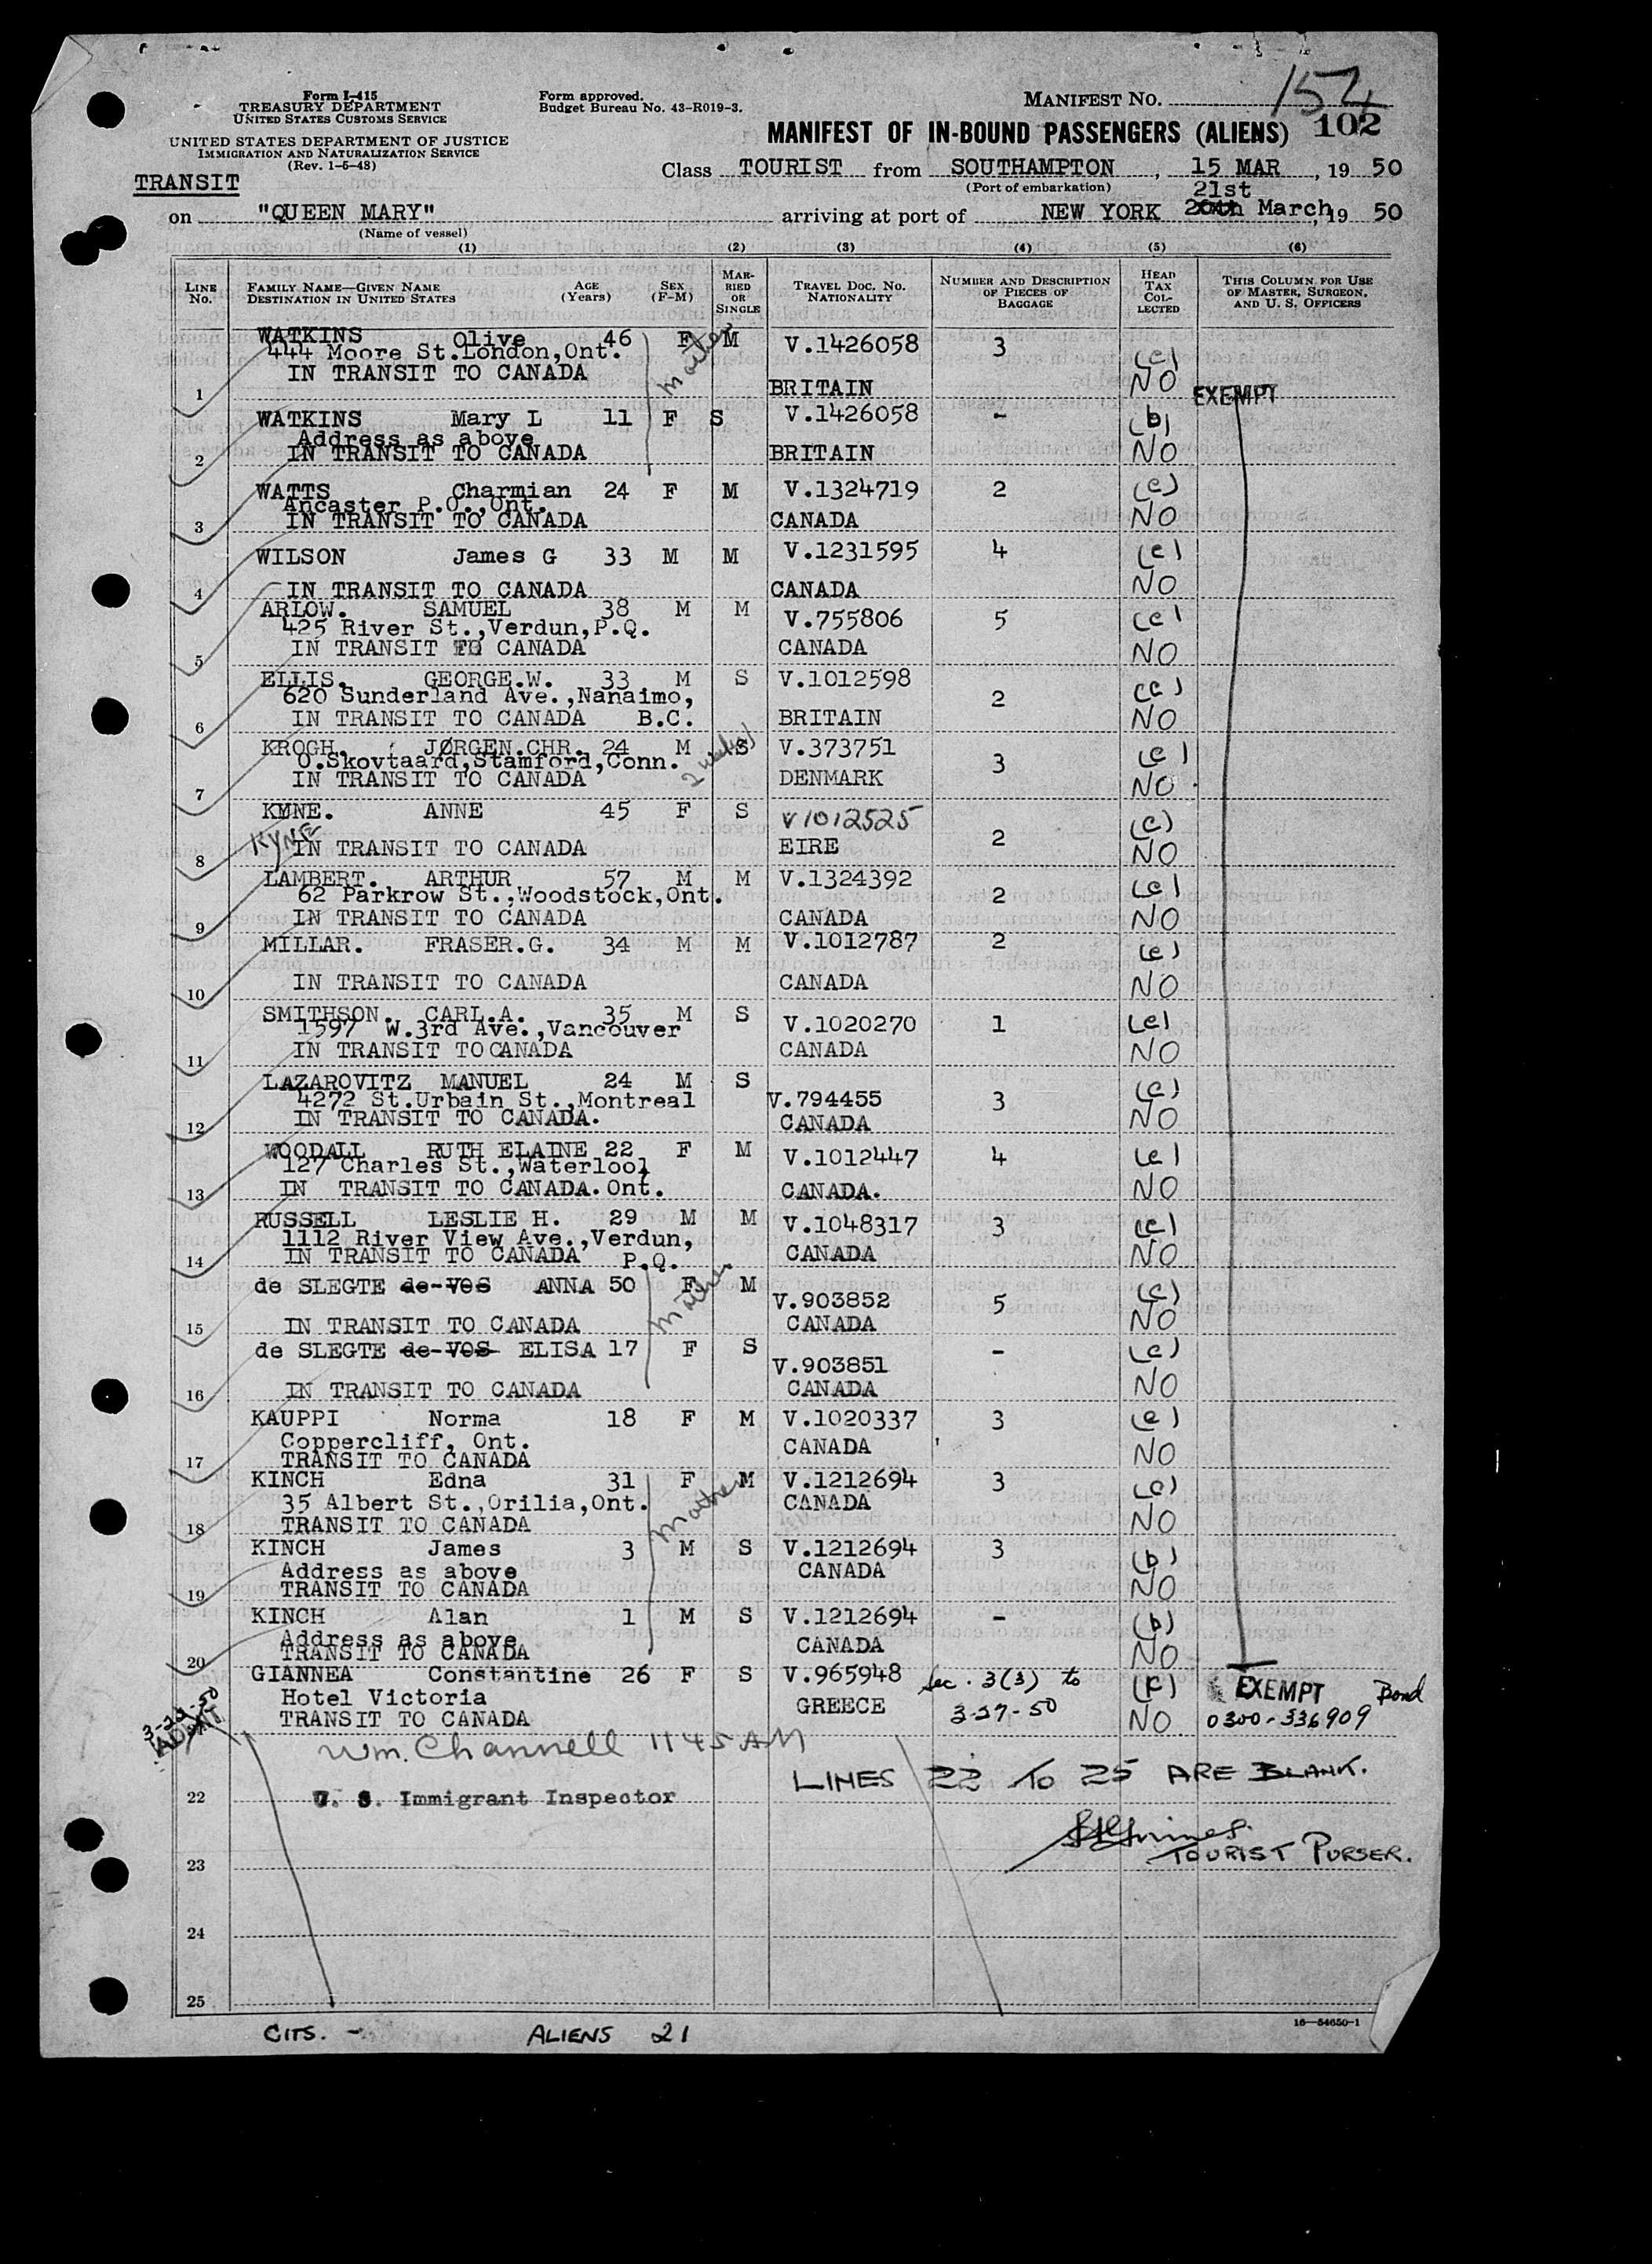 Form I-415
TREASURY DEPARTMENT
UNITED STATES CUSTOMS SERVICE
UNITED STATES DEPARTMENT OF JUSTICE
IMMIGRATION AND NATURALIZATION SERVICE
(Rev. 1-5-48)
TRANSIT
Form approved.
Budget Bureau No. 43-R019-3.
MANIFEST NO.
102
MANIFEST OF IN-BOUND PASSENGERS (ALIENS)
Class TOURIST from SOUTHAMPTON, 15 MAR, 19 50
(Port of embarkation)
21st
on "QUEEN MARY" arriving at port of NEW YORK 20th March, 19 50
(Name of vessel)
(1) (2) (3) (4) (5) (6)
LINE NO. FAMILY NAME—GIVEN NAME DESTINATION IN UNITED STATES AGE (Years) SEX (F-M) MARRIED OR SINGLE TRAVEL DOC. NO. NATIONALITY NUMBER AND DESCRIPTION OF PIECES OF BAGGAGE HEAD TAX COLLECTED THIS COLUMN FOR USE OF MASTER, SURGEON, AND U. S. OFFICERS
WATKINS Olive 46 F M V.1426058 3 (e)
444 Moore St.London,Ont.
IN TRANSIT TO CANADA
1 BRITAIN NO EXEMPT
mother
WATKINS Mary L 11 F S V.1426058 - (b)
Address as above
2 IN TRANSIT TO CANADA BRITAIN NO
WATTS Charmian 24 F M V.1324719 2 (e)
Ancaster P.O.,Ont.
3 IN TRANSIT TO CANADA CANADA NO
WILSON James G 33 M M V.1231595 4 (e)
4 IN TRANSIT TO CANADA CANADA NO
ARLOW. SAMUEL 38 M M V.755806 5 (e)
425 River St.,Verdun,P.Q.
5 IN TRANSIT TO CANADA CANADA NO
ELLIS. GEORGE.W. 33 M S V.1012598 2 (e)
620 Sunderland Ave.,Nanaimo,
6 IN TRANSIT TO CANADA B.C. BRITAIN NO
KROGH. JØRGEN.CHR. 24 M S V.373751 3 (e)
O.Skovtaard,Stamford,Conn.
7 IN TRANSIT TO CANADA DENMARK NO
2 weeks
KYNE. ANNE 45 F S V1012525 2 (e)
KYNE
8 IN TRANSIT TO CANADA EIRE NO
LAMBERT. ARTHUR 57 M M V.1324392 2 (e)
62 Parkrow St.,Woodstock,Ont.
9 IN TRANSIT TO CANADA CANADA NO
MILLAR. FRASER.G. 34 M M V.1012787 2 (e)
10 IN TRANSIT TO CANADA CANADA NO
SMITHSON. CARL.A. 35 M S V.1020270 1 (e)
1597 W.3rd Ave.,Vancouver
11 IN TRANSIT TO CANADA CANADA NO
LAZAROVITZ MANUEL 24 M S V.794455 3 (e)
4272 St.Urbain St.,Montreal
12 IN TRANSIT TO CANADA. CANADA NO
WOODALL RUTH ELAINE 22 F M V.1012447 4 (e)
127 Charles St.,Waterlool
13 IN TRANSIT TO CANADA.Ont. CANADA. NO
RUSSELL LESLIE H. 29 M M V.1048317 3 (e)
1112 River View Ave.,Verdun,
14 IN TRANSIT TO CANADA P.Q. CANADA NO
de SLEGTE de-VOS ANNA 50 F M V.903852 5 (e)
15 IN TRANSIT TO CANADA CANADA NO
mother
de SLEGTE de-VOS ELISA 17 F S V.903851 - (e)
16 IN TRANSIT TO CANADA CANADA NO
KAUPPI Norma 18 F M V.1020337 3 (e)
Coppercliff, Ont.
17 TRANSIT TO CANADA CANADA NO
KINCH Edna 31 F M V.1212694 3 (e)
35 Albert St.,Orilia,Ont.
18 TRANSIT TO CANADA CANADA NO
mother
KINCH James 3 M S V.1212694 3 (b)
Address as above
19 TRANSIT TO CANADA CANADA NO
KINCH Alan 1 M S V.1212694 - (b)
Address as above
20 TRANSIT TO CANADA CANADA NO
GIANNEA Constantine 26 F S V.965948 Sec. 3(3) to EXEMPT Bond
Hotel Victoria GREECE 3-27-50 NO 0300-336909
TRANSIT TO CANADA
Wm. Channell 1145 AM
LINES 22 TO 25 ARE BLANK.
22 U. S. Immigrant Inspector
TOURIST PURSER.
23
24
25
16—54650-1
CITS. - ALIENS 21